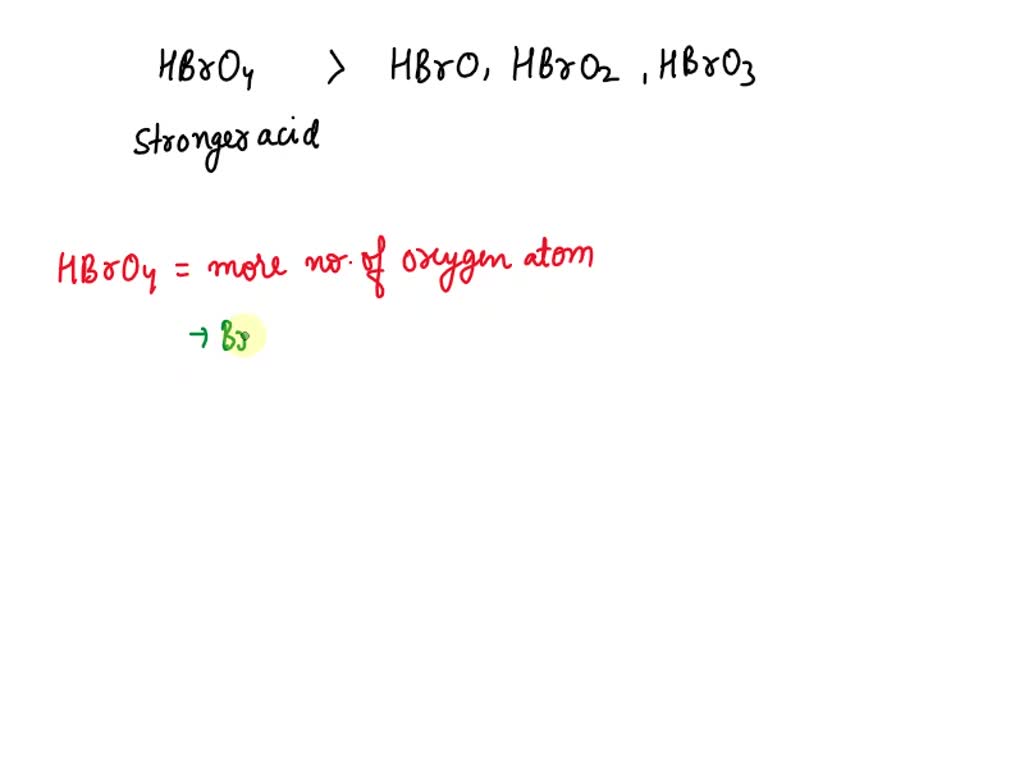 HBrO₄ > HBrO, HBrO₂, HBrO₃
Stronger acid
HBrO₄ = more no. of oxygen atom
→ Br